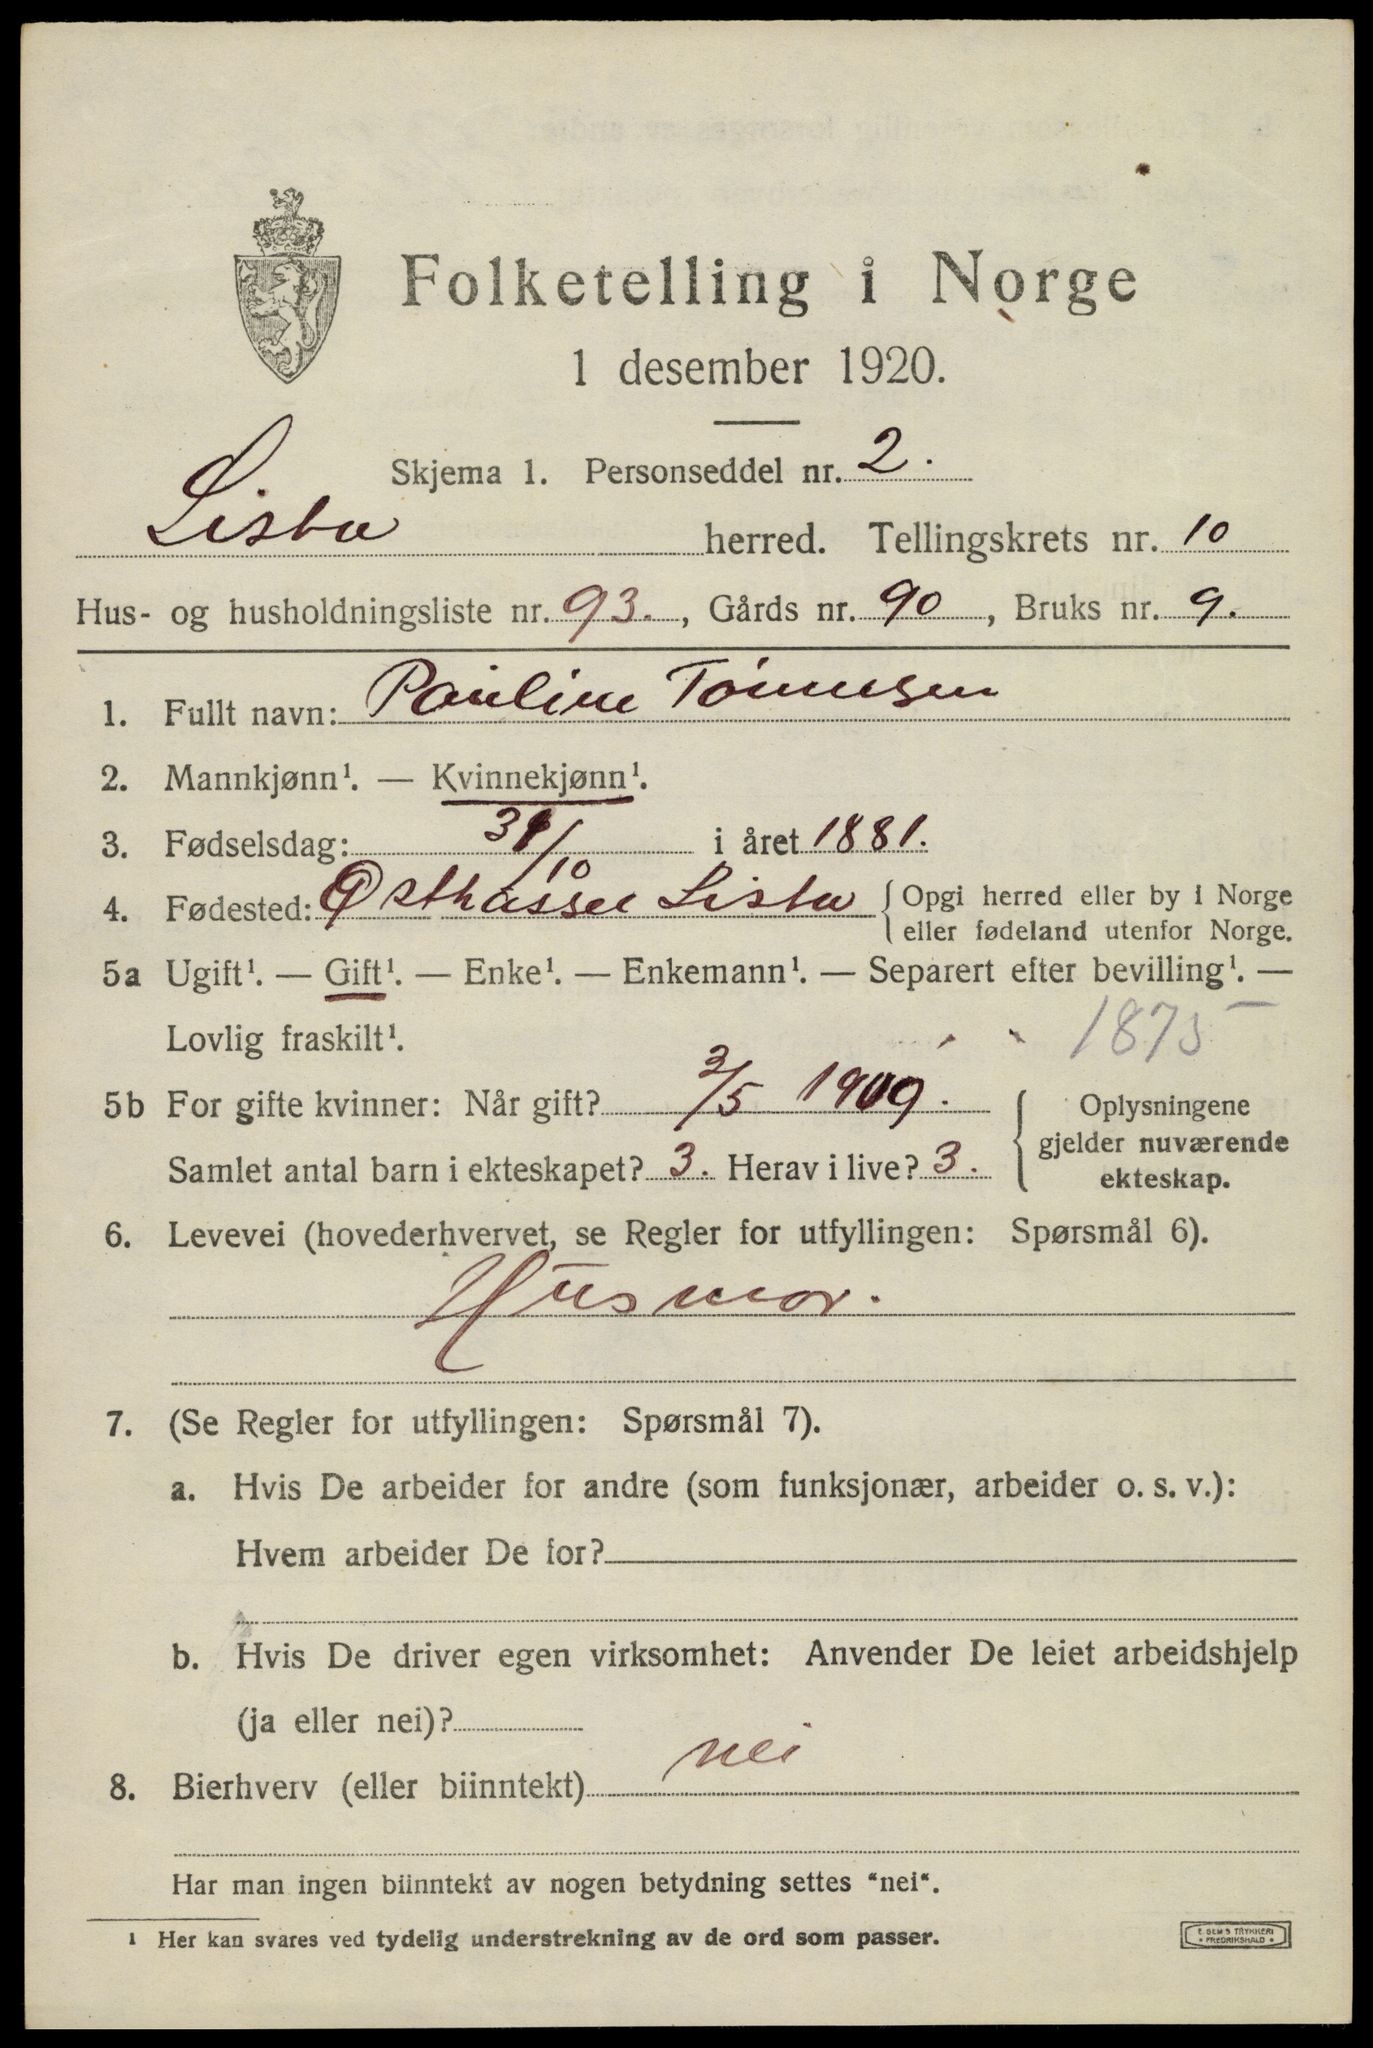 Folketelling i Norge
1 desember 1920.
Skjema 1. Personseddel nr. 2.
Lista herred. Tellingskrets nr. 10
Hus- og husholdningsliste nr. 93., Gårds nr. 90, Bruks nr. 9.
1. Fullt navn: Pauline Tønnesen
2. Mannkjønn¹. — Kvinnekjønn¹.
3. Fødselsdag: 31/10 i året 1881.
4. Fødested: Østhassel Lista { Opgi herred eller by i Norge
eller fødeland utenfor Norge.
5a Ugift¹. — Gift¹. — Enke¹. — Enkemann¹. — Separert efter bevilling¹. —
Lovlig fraskilt¹. 1875
5b For gifte kvinner: Når gift? 2/5 1909. { Oplysningene
gjelder nuværende
ekteskap.
Samlet antal barn i ekteskapet? 3. Herav i live? 3.
6. Levevei (hovederhvervet, se Regler for utfyllingen: Spørsmål 6).
Husmor.
7. (Se Regler for utfyllingen: Spørsmål 7).
a. Hvis De arbeider for andre (som funksjonær, arbeider o. s. v.):
Hvem arbeider De for?
b. Hvis De driver egen virksomhet: Anvender De leiet arbeidshjelp
(ja eller nei)?
8. Bierhverv (eller biinntekt) nei
Har man ingen biinntekt av nogen betydning settes "nei".
¹ Her kan svares ved tydelig understrekning av de ord som passer.
E. SEM'S TRYKKERI
• FREDRIKSHALD •